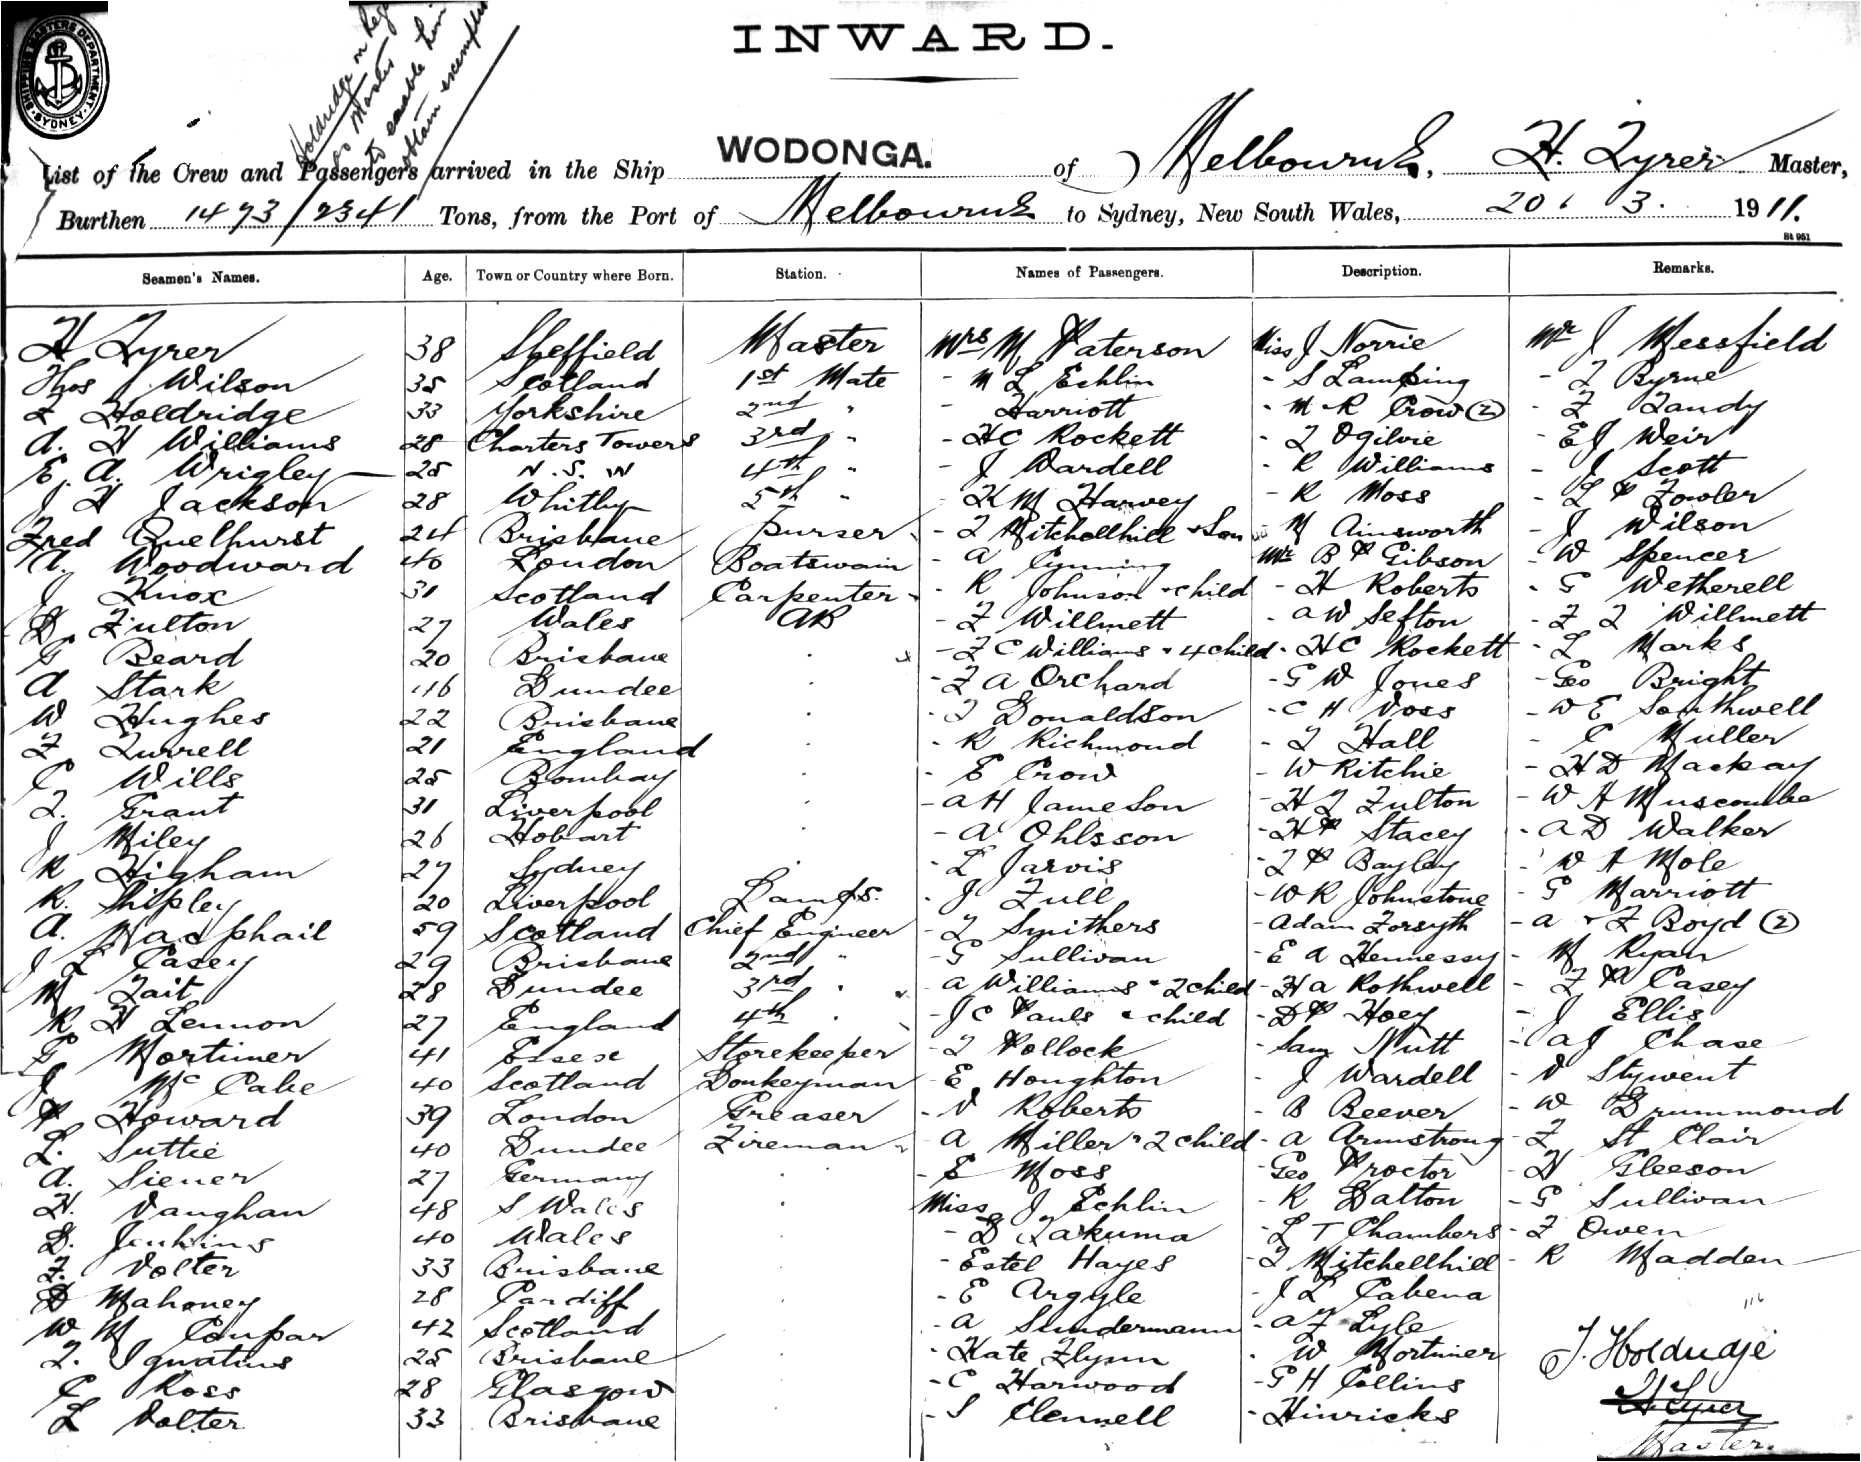 SHIPPING MASTERS DEPARTMENT SYDNEY
Holdridge on
as Master
to enable him
obtain
INWARD.
List of the Crew and Passengers arrived in the Ship WODONGA. of Melbourne, H. Tyrer Master,
Burthen 1473/2341 Tons, from the Port of Melbourne to Sydney, New South Wales, 20. 3. 1911.
St 951
Seamen's Names. Age. Town or Country where Born. Station. Names of Passengers. Description. Remarks.
H Tyrer 38 Sheffield Master Mrs M Paterson Miss J Norrie Mr J Messfield
Thos J Wilson 35 Scotland 1st Mate - M L Echlin - S Lamping - T Byrne
T Holdridge 33 Yorkshire 2nd " - Harriott - M R Crow (2) - F Tandy
A. H Williams 28 Charters Towers 3rd " - H C Rockett - T Ogilvie - E J Weir
E. A. Wrigley 25 N. S. W 4th " - J Wardell - R Williams - J Scott
J H Jackson 28 Whitby 5th " - K M Harvey - R Moss - L P Fowler
Fred Quelhurst 24 Brisbane Purser - T Mitchellhill & Son - M Ainsworth - J Wilson
A. Woodward 46 London Boatswain - A Mr B P Gibson - W Spencer
J Knox 31 Scotland Carpenter - R Johnson & child - H Roberts - G Wetherell
D Fulton 27 Wales AB - F Willmett - A W Sefton - F T Willmett
G Beard 20 Brisbane - F C Williams & 4 child - H C Rockett - L Marks
A Stark 46 Dundee - F A Orchard - G W Jones - Geo Bright
W Hughes 22 Brisbane - T Donaldson - C H Voss - W E Southwell
F Turrell 21 England - R Richmond - T Hall - C Muller
C Wills 25 Bombay - E Crow - W Ritchie - H D Mackay
T. Grant 31 Liverpool - A H Jameson - H T Fulton - W H Muscombe
J Miley 26 Hobart - A Ohlsson - H P Stacey - A D Walker
R Higham 27 Sydney - L Jarvis - T P Bayley - W H Mole
R. Shipley 20 Liverpool Lamps. - J Tull - W R Johnstone - G Marriott
A. Macphail 59 Scotland Chief Engineer - T Smithers - Adam Forsyth - A & F Boyd (2)
J L Casey 29 Brisbane 2nd " - G Sullivan - E A Hennessy - M Ryan
M Tait 28 Dundee 3rd " - A Williams & 2 child - H A Rothwell - F P Casey
R H Lennon 27 England 4th " - J C Pauls & child - D P Hoey - J Ellis
G Mortimer 41 Essex Storekeeper - T Pollock - Sam Nutt - A J Chase
J McCabe 40 Scotland Donkeyman - E Houghton - J Wardell - V Stywent
P Howard 39 London Greaser - V Roberts - B Beever - W Drummond
L. Suttie 40 Dundee Fireman - A Miller & 2 child - A Armstrong - F St Clair
A. Siener 27 Germany - E Moss - Geo Proctor - H Gleeson
H. Vaughan 48 S Wales Miss J Echlin - R Dalton - G Sullivan
D. Jenkins 40 Wales - D Takuma - L T Chambers - F Owen
F. Volter 33 Brisbane - Estel Hayes - T Mitchellhill - R Madden
D Mahoney 28 Cardiff - E Argyle - J L Cabena
W M Coupar 42 Scotland - A Sundermann - A F Lyle
T. Ignatius 25 Brisbane - Kate Flynn - W Mortimer
C Ross 28 Glasgow - C Harwood - G H Collins
L Volter 33 Brisbane - S Clennell - Hinricks
116
J. Holdridge
H Tyrer
Master.